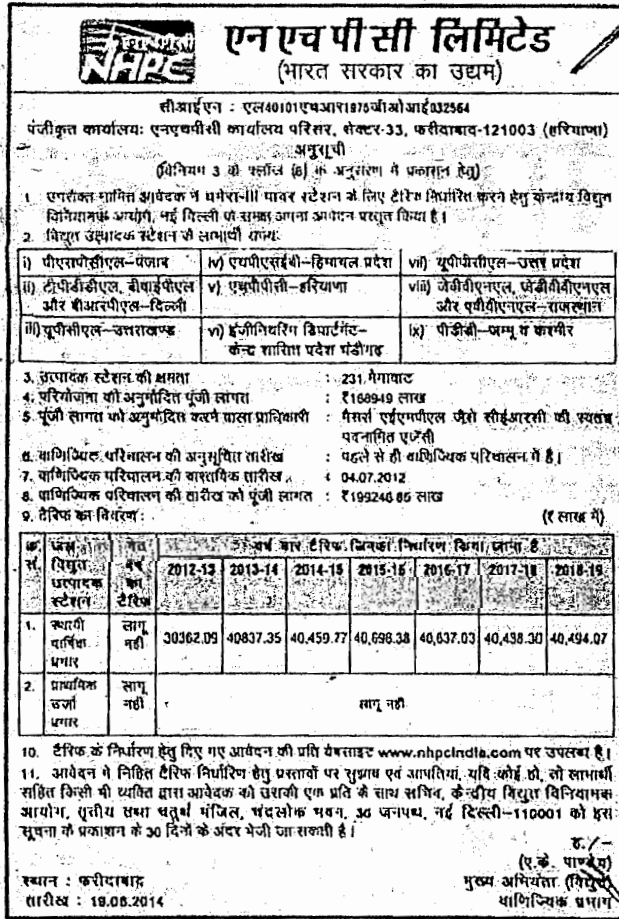 एन एच पी सी लिमिटेड
NHPC
(भारत सरकार का उद्यम)
सीआईएन : एल40101एचआर1975जीओआई032564
पंजीकृत कार्यालयः एनएचपीसी कार्यालय परिसर, सेक्टर-33, फरीदाबाद-121003 (हरियाणा)
अनुसूची
(विनियम 3 के क्लॉज (6) के अनुसरण में प्रकाशन हेतु)
1. उपरोक्त नामित आवेदक ने चमेरा-III पावर स्टेशन के लिए टैरिफ निर्धारित करने हेतु केन्द्रीय विद्युत
विनियामक आयोग, नई दिल्ली के समक्ष अपना आवेदन प्रस्तुत किया है।
2. विद्युत उत्पादक स्टेशन के लाभार्थी राज्यः
i) पीएसपीसीएल–पंजाब iv) एचपीएसईबी–हिमाचल प्रदेश vii) यूपीपीसीएल–उत्तर प्रदेश
ii) टीपीडीडीएल, बीवाईपीएल v) एचपीपीसी–हरियाणा viii) जेवीवीएनएल, जेडीवीवीएनएल
और बीआरपीएल–दिल्ली और एवीवीएनएल–राजस्थान
iii) यूपीसीएल–उत्तराखण्ड vi) इंजीनियरिंग डिपार्टमेंट– ix) पीडीडी–जम्मू व कश्मीर
केन्द्र शासित प्रदेश चंडीगढ़
3. उत्पादक स्टेशन की क्षमता : 231 मेगावाट
4. परियोजना की अनुमोदित पूंजी लागत : ₹168949 लाख
5. पूंजी लागत को अनुमोदित करने वाला प्राधिकारी : मैसर्स एईएमपीएल जैसे सीईआरसी की स्वतंत्र
पदनामित एजेंसी
6. वाणिज्यिक परिचालन की अनुसूचित तारीख : पहले से ही वाणिज्यिक परिचालन में है।
7. वाणिज्यिक परिचालन की वास्तविक तारीख : 04.07.2012
8. वाणिज्यिक परिचालन की तारीख को पूंजी लागत : ₹199246.85 लाख
9. टैरिफ का विवरण : (₹ लाख में)
क्र. जल गत वर्ष वार टैरिफ जिनका निर्धारण किया जाना है
सं. विद्युत वर्ष 2012-13 2013-14 2014-15 2015-16 2016-17 2017-18 2018-19
उत्पादक का
स्टेशन टैरिफ
1. स्थायी लागू 30362.09 40837.35 40,459.77 40,698.38 40,637.03 40,438.30 40,494.07
वार्षिक नहीं
प्रभार
2. प्राथमिक लागू लागू नहीं
उर्जा नहीं
प्रभार
10. टैरिफ के निर्धारण हेतु दिए गए आवेदन की प्रति वेबसाइट www.nhpcindia.com पर उपलब्ध है।
11. आवेदन में निहित टैरिफ निर्धारण हेतु प्रस्तावों पर सुझाव एवं आपत्तियां, यदि कोई हो, तो लाभार्थी
सहित किसी भी व्यक्ति द्वारा आवेदक को उसकी एक प्रति के साथ सचिव, केन्द्रीय विद्युत विनियामक
आयोग, तृतीय तथा चतुर्थ मंजिल, चंद्रलोक भवन, 36 जनपथ, नई दिल्ली–110001 को इस
सूचना के प्रकाशन के 30 दिनों के अंदर भेजी जा सकती है।
ह./–
(ए.के. पाण्डेय)
स्थान : फरीदाबाद मुख्य अभियंता (विद्युत)
तारीख : 19.06.2014 वाणिज्यिक प्रभाग